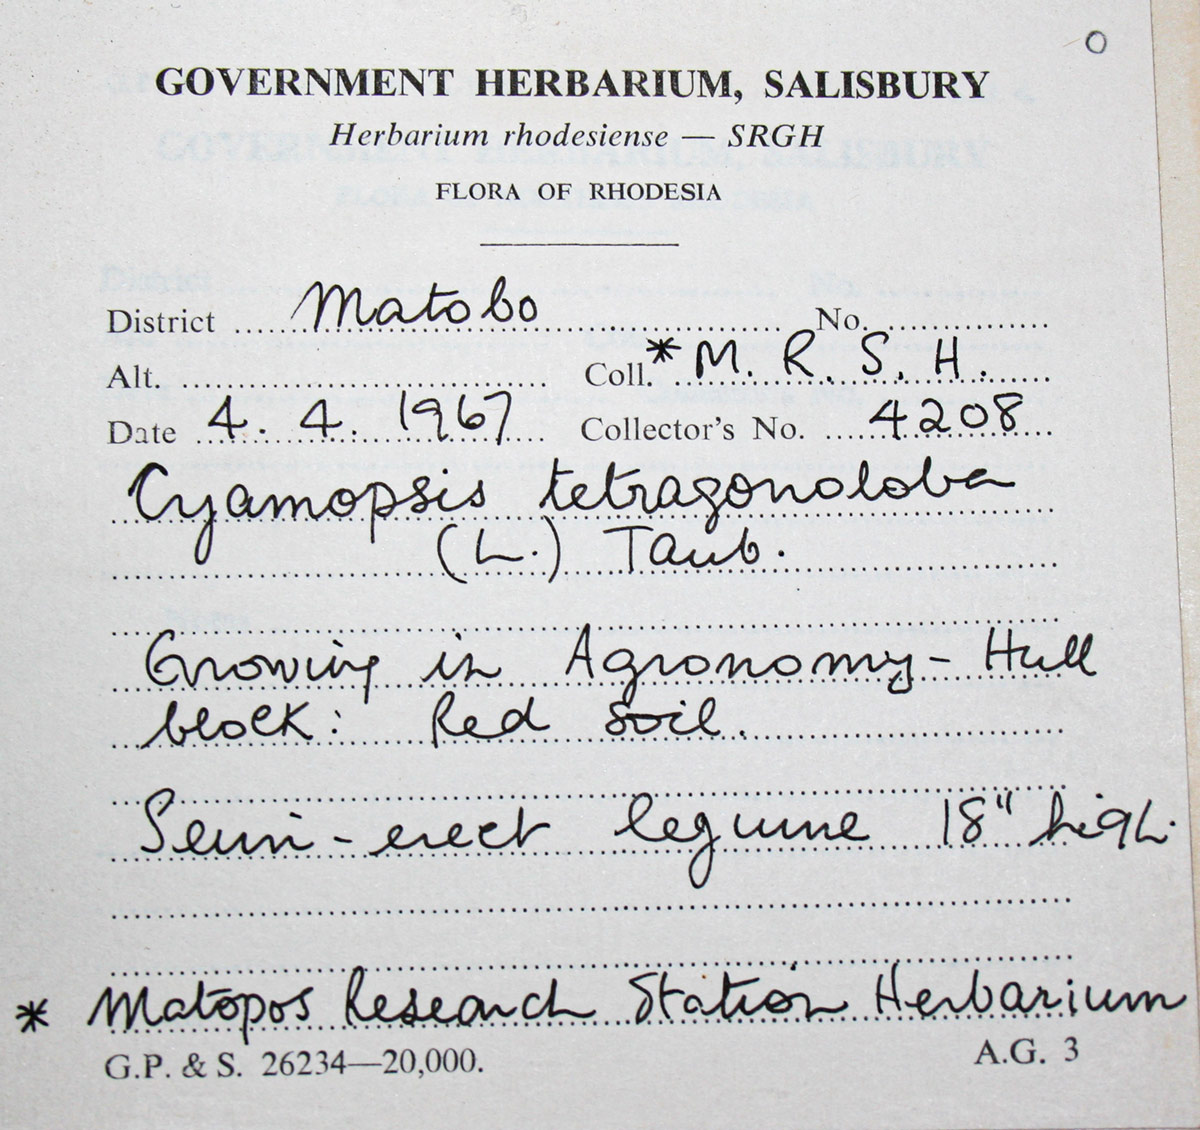 O
GOVERNMENT HERBARIUM, SALISBURY
Herbarium rhodesiense — SRGH
FLORA OF RHODESIA
District Matobo No.
Alt. Coll. * M. R. S. H.
Date 4. 4. 1967 Collector's No. 4208
Cyamopsis tetragonoloba
(L.) Taub.
Growing in Agronomy - Hull
block: Red soil.
Semi-erect legume 18" high.
* Matopos Research Station Herbarium
G.P. & S. 26234—20,000. A.G. 3